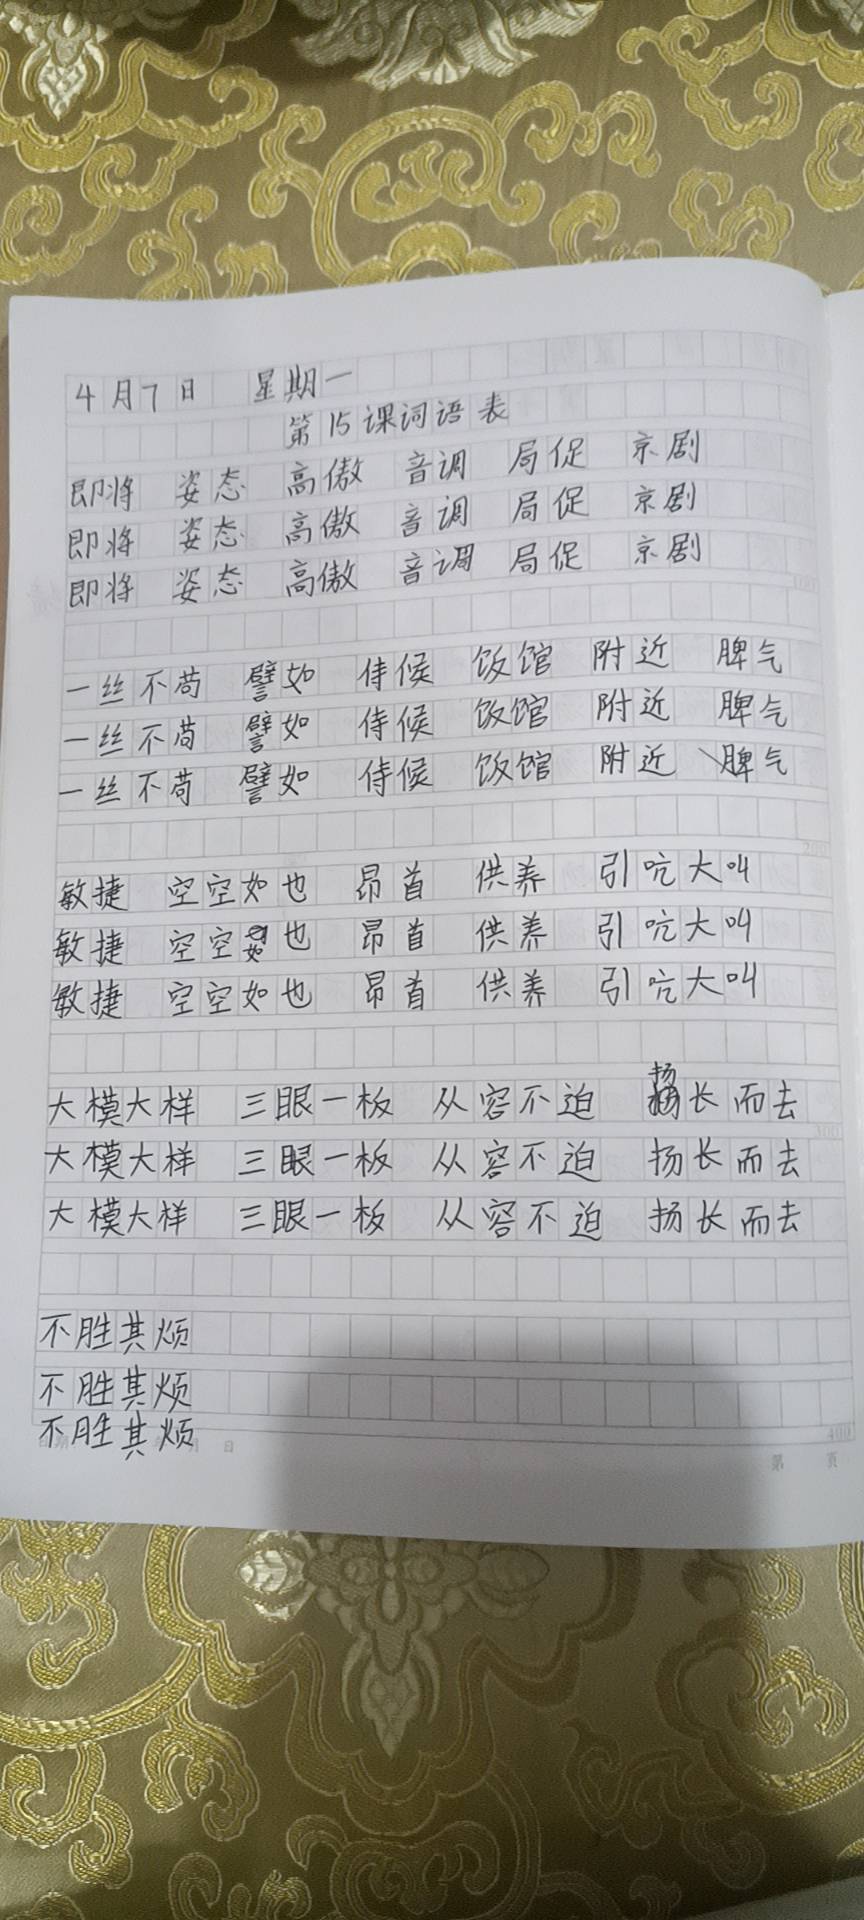 4月7日 星期一
第15课词语表
即将 姿态 高傲 音调 局促 京剧
即将 姿态 高傲 音调 局促 京剧
即将 姿态 高傲 音调 局促 京剧
一丝不苟 譬如 侍候 饭馆 附近 脾气
一丝不苟 譬如 侍候 饭馆 附近 脾气
一丝不苟 譬如 侍候 饭馆 附近 脾气
敏捷 空空如也 昂首 供养 引吭大叫
敏捷 空空如也 昂首 供养 引吭大叫
敏捷 空空如也 昂首 供养 引吭大叫
大模大样 三眼一板 从容不迫 扬长而去
大模大样 三眼一板 从容不迫 扬长而去
300
大模大样 三眼一板 从容不迫 扬长而去
不胜其烦
不胜其烦
不胜其烦
400
月 日 第 页